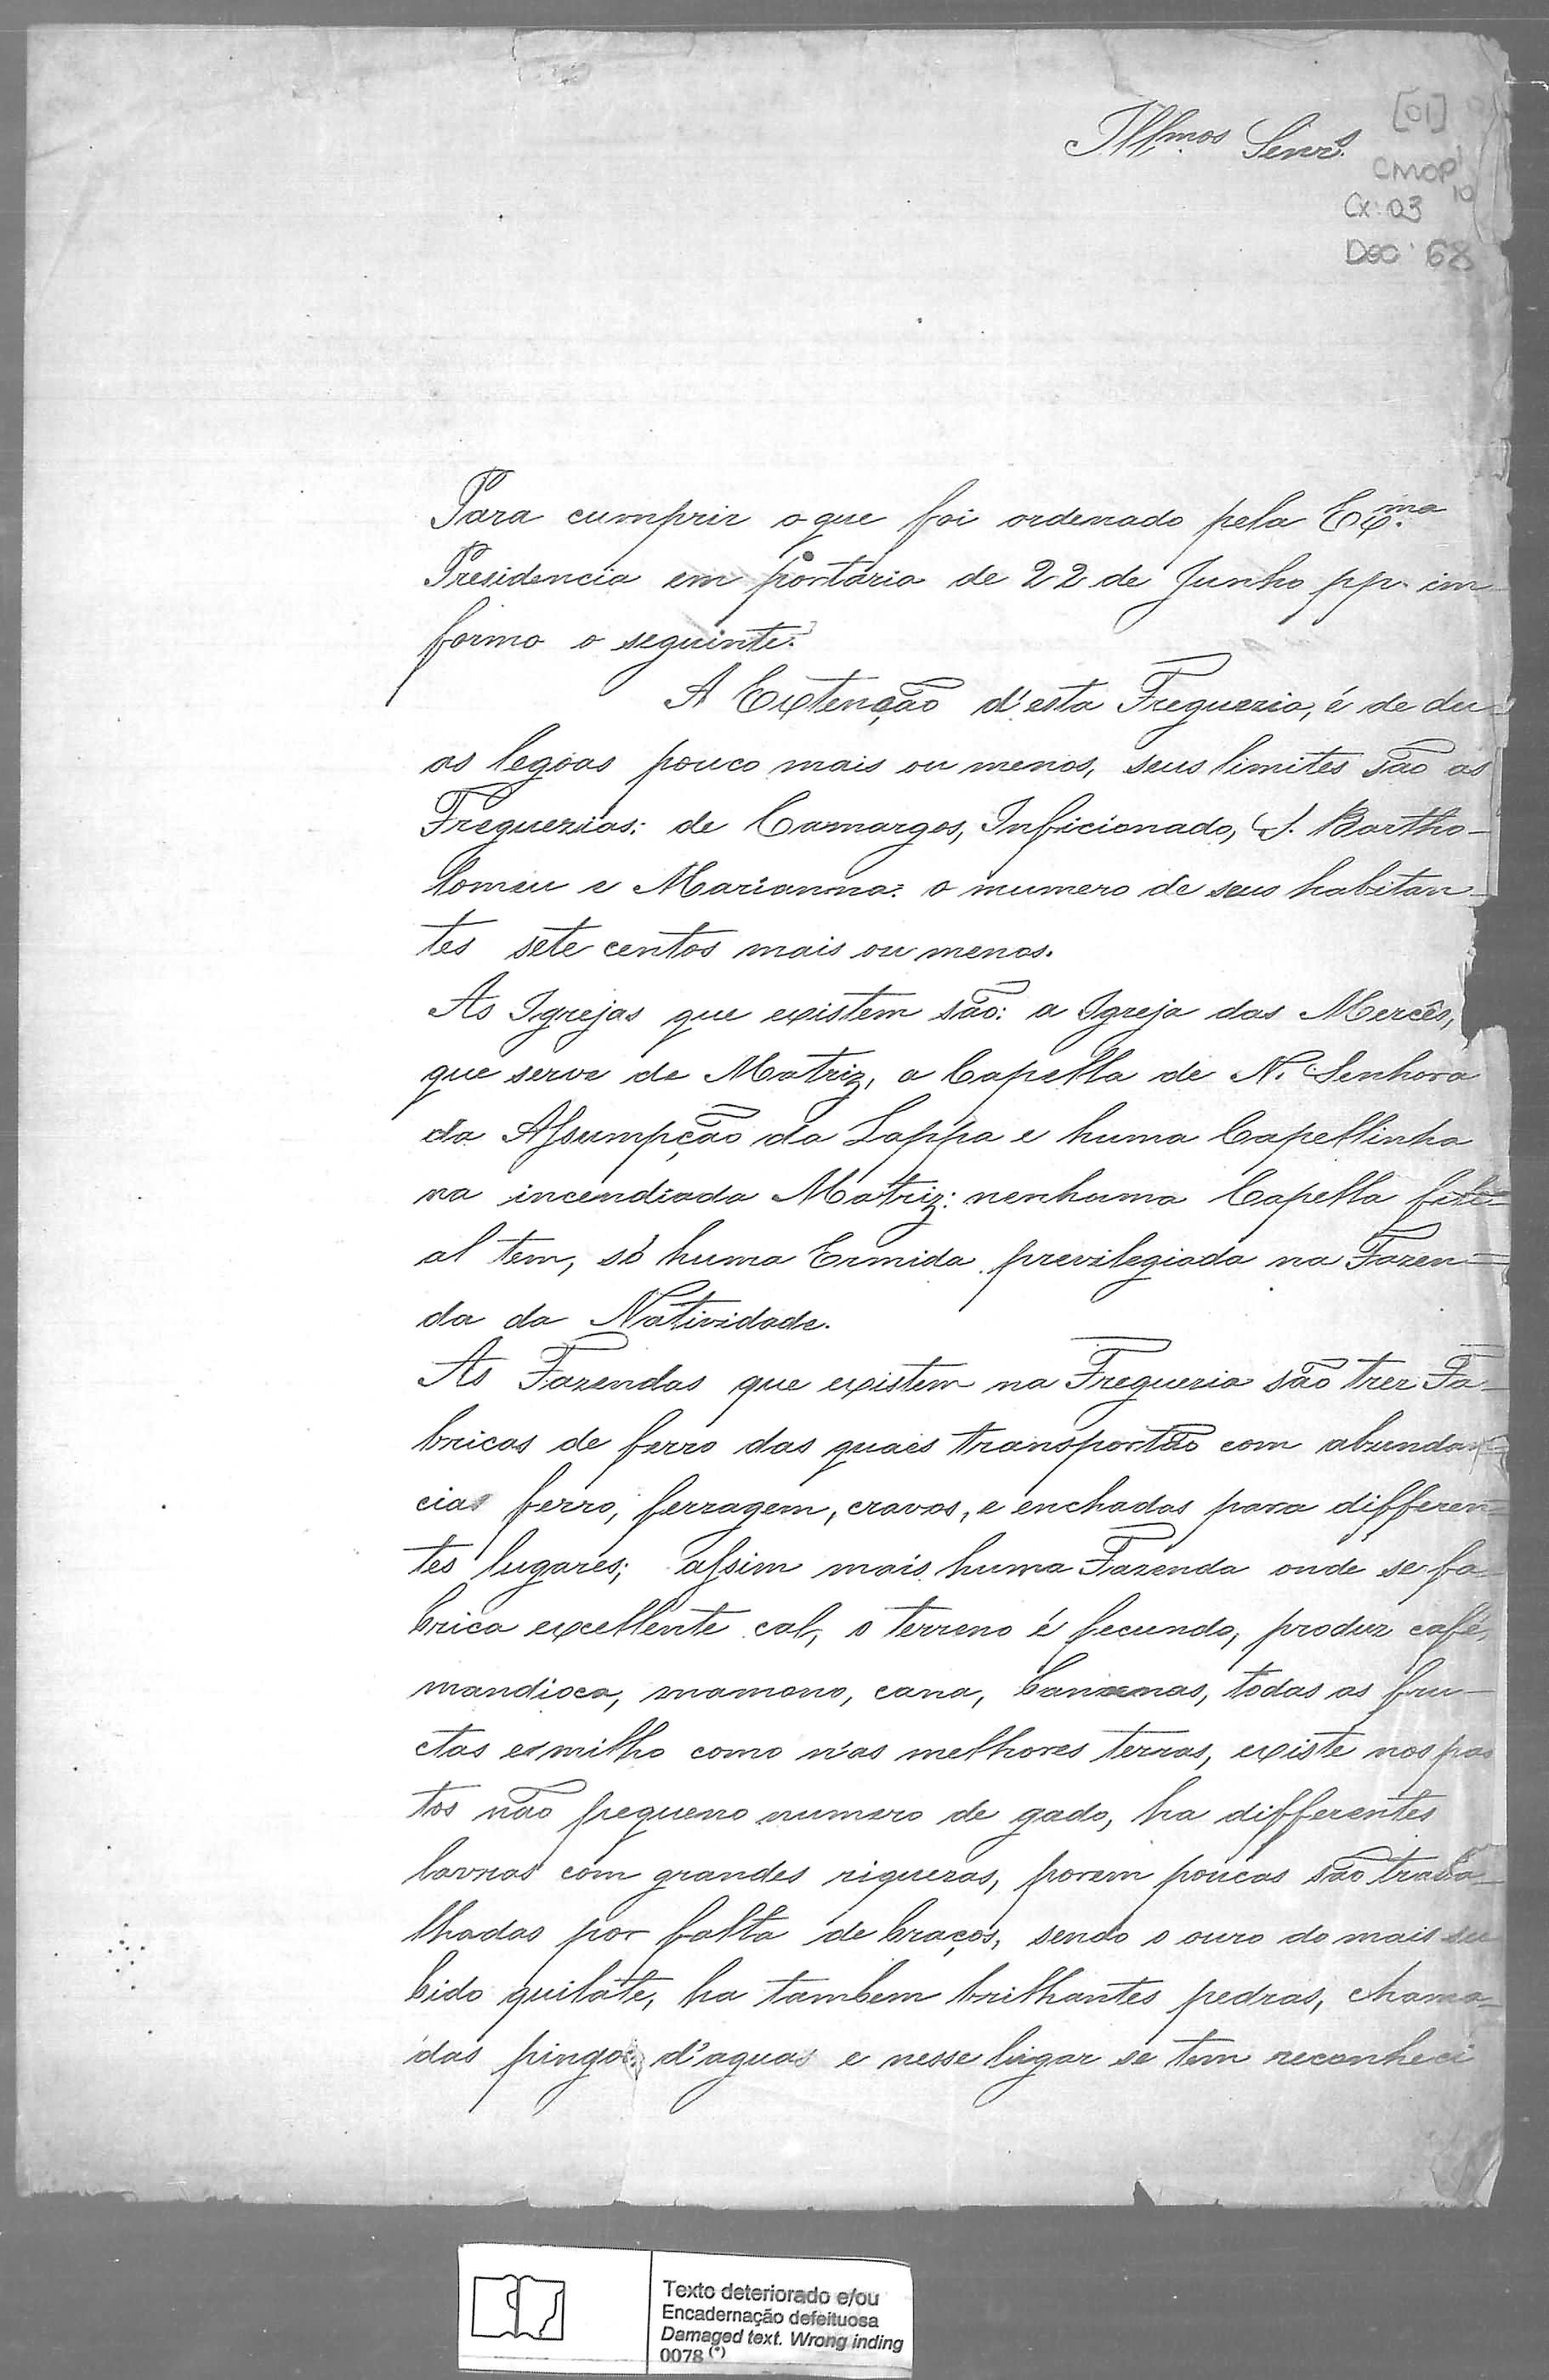 Illmos Senrs.
[01]
CMOP
10
Cx: 03
Doc: 68
Para cumprir o que foi ordenado pela Exma.
Presidencia em portaria de 22 de Junho pp. im
formo o seguinte:
A Extenção d'esta Freguezia, é de du-
as legoas pouco mais ou menos, seus limites são as
Freguezias: de Camargos, Inficionado, S. Bartho-
lomeu e Marianna: o numero de seus habitan-
tes sete centos mais ou menos.
As Igrejas que existem são: a Igreja das Mercês,
que serve de Matriz, a Capella de N. Senhora
da Assumpção da Lappa e huma Capellinha
na incendiada Matriz: nenhuma Capella fili-
al tem, só huma Ermida previlegiada na Fazen=
da da Natividade.
As Fazendas que existem na Freguezia são trez Fa-
bricas de ferro das quaes transportão com abundan-
cia ferro, ferragem, cravos, e enchadas para differen=
tes lugares; assim mais huma Fazenda onde se fa-
brica excellente cal, o terreno é fecundo, produz café,
mandioca, mamono, cana, bananas, todas as fru-
ctas e milho como n'as melhores terras, existe nos pas
tos não pequeno numero de gado, ha differentes
lavras com grandes riquezas, porem poucas são traba-
lhadas por falta de braços, sendo o ouro do mais su
bido quilate, ha tambem brilhantes pedras, chama-
das pingos d'aguas e nesse lugar se tem reconheci
Texto deteriorado e/ou
Encadernação defeituosa
Damaged text. Wrong inding
0078 (*)